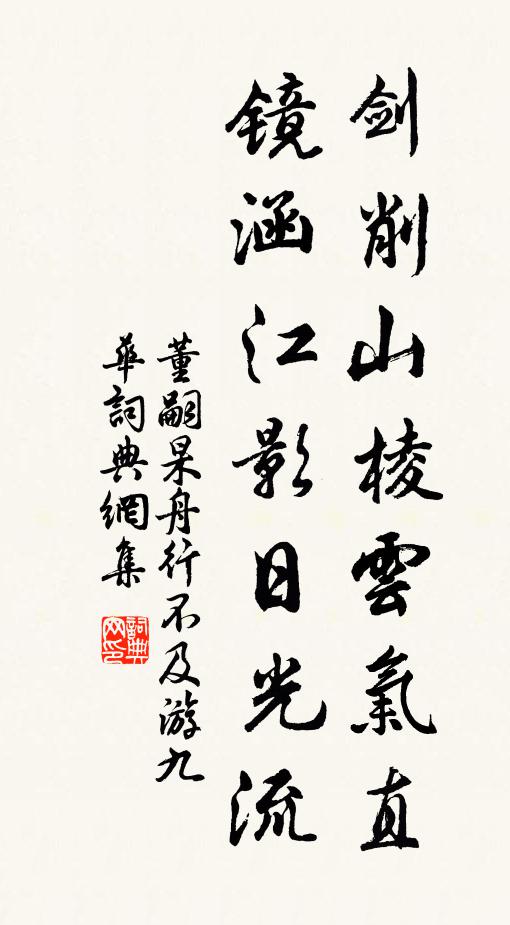 剑削山棱雲氣直
镜涵江影日光流
董嗣杲舟行不及游九
華詞典網集
詞典网印